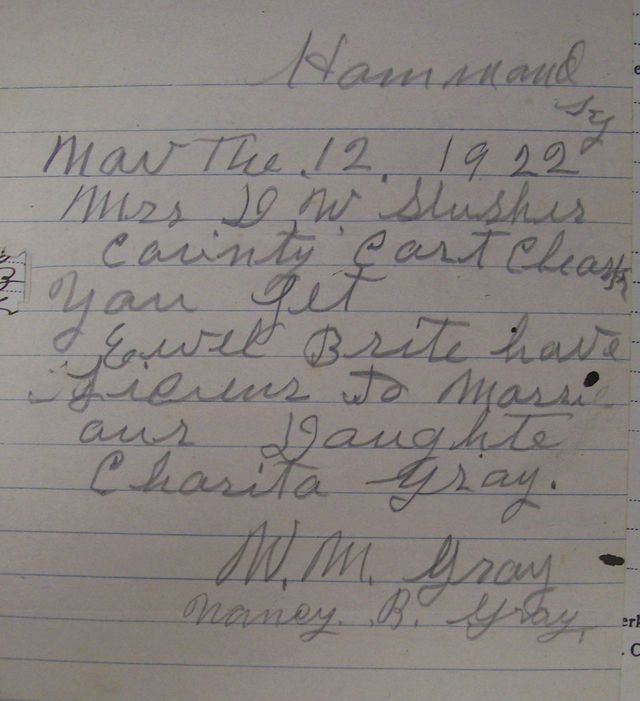 Hammand
Ky
Nov The. 12. 1922
Mrs D. W. Slusher
County Cart Cleark
You Let
Ewel Brite have
Licienz To Marrie
our Daughte
Charita Gray.
W. M. Gray
Nancy. B. Gray.